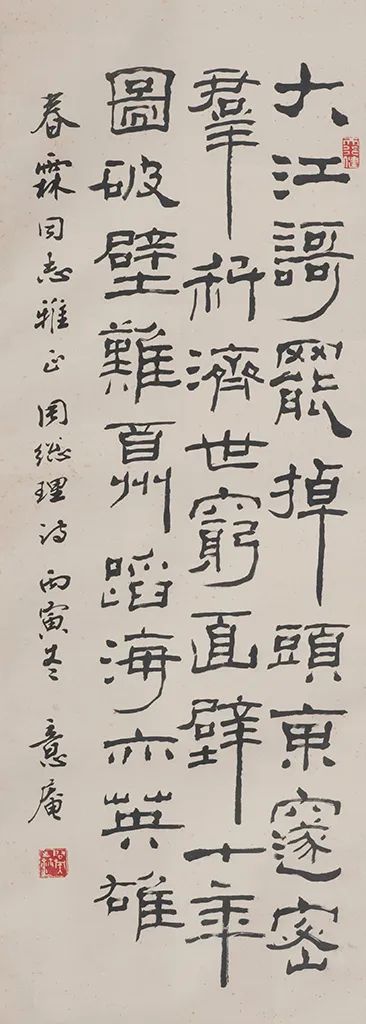 大江謌罷掉頭東邃密
羣科濟世窮面壁十年
圖破壁難酬蹈海亦英雄
春霖同志雅正 周總理詩 丙寅冬 意庵